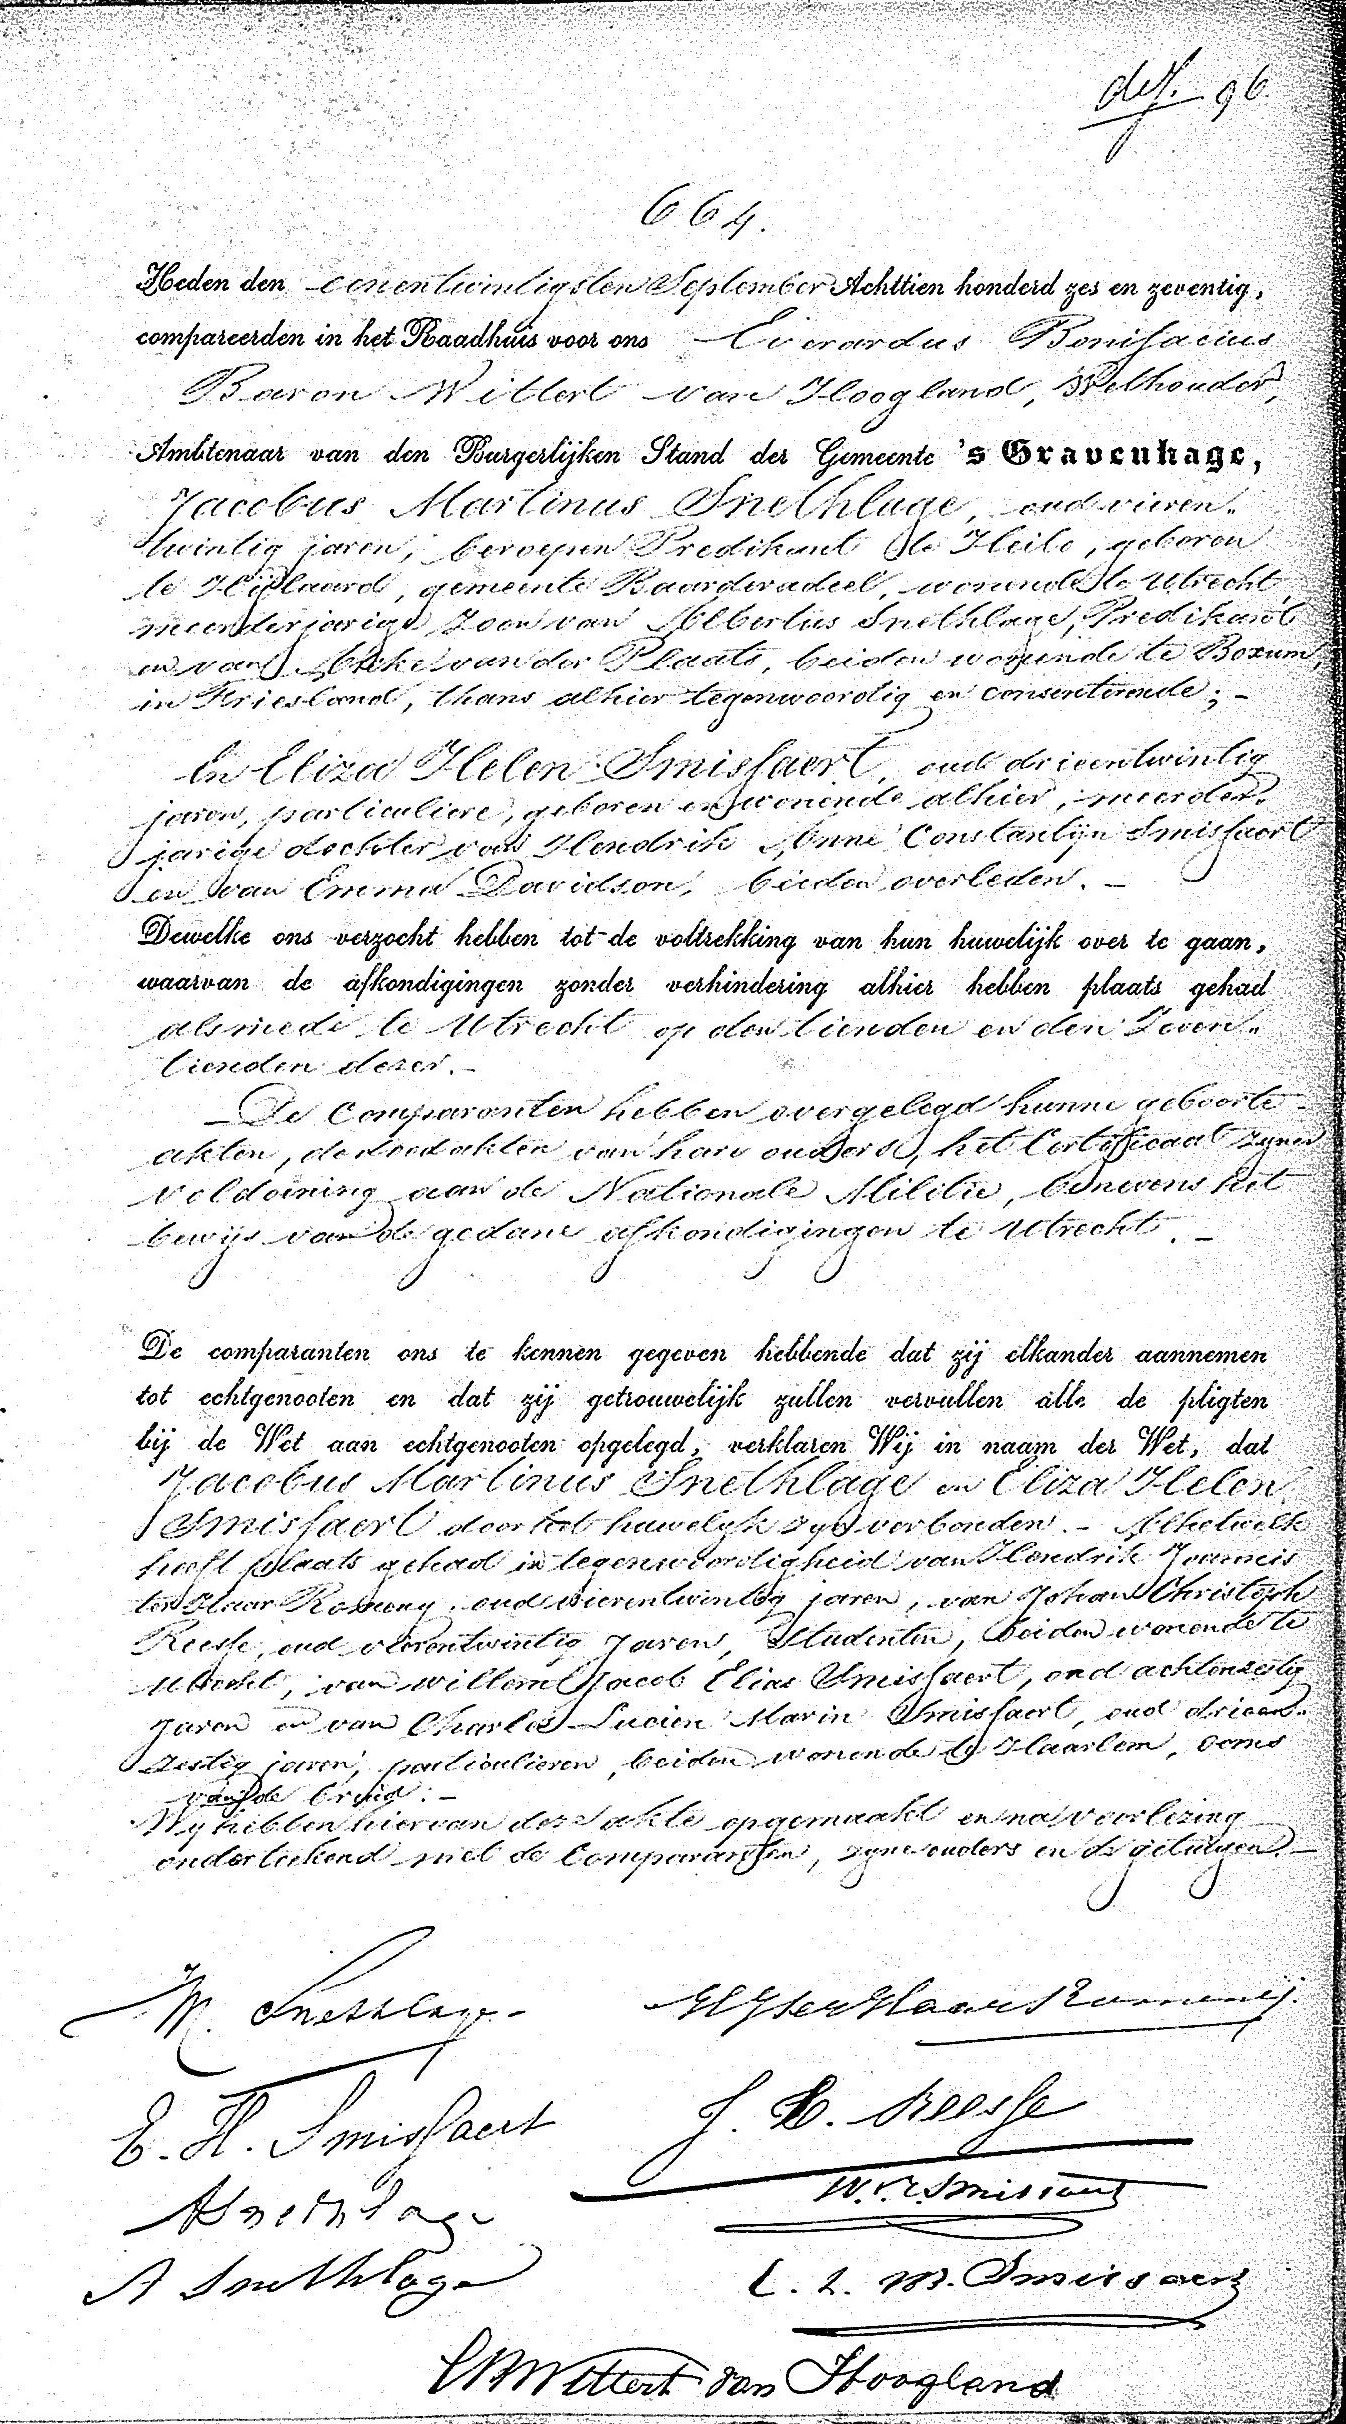 96
664.
Heden den eenentwintigsten September Achttien honderd zes en zeventig,
compareerden in het Raadhuis voor ons Everardus Bonifacius
Baron Wittert van Hoogland, Wethouder,
Ambtenaar van den Burgerlijken Stand der Gemeente 's Gravenhage,
Jacobus Martinus Snethlage, oud vieren-
twintig jaren, beroepen Predikant te Heile, geboren
te Hijlaard, gemeente Baarderadeel, wonende te Utrecht,
meerderjarige Zoon van Albertus Snethlage, Predikant
en van van der Plaats, beiden wonende te Boxum,
in Friesland, thans alhier tegenwoordig en consenterende; -
En Eliza Helen Smissaert, oud drieentwintig
jaren, particuliere, geboren en wonende alhier, meerder-
jarige dochter van Hendrik Anne Constantijn Smissaert
en van Emma Davidson, beiden overleden. -
Dewelke ons verzocht hebben tot de voltrekking van hun huwelijk over te gaan,
waarvan de afkondigingen zonder verhindering alhier hebben plaats gehad
alsmede te Utrecht op den tienden en den Zeven-
tienden dezer. -
- De Comparanten hebben overgelegd hunne geboorte-
akten, de doodakten van hare ouders, het Certificaat zijner
voldoening aan de Nationale Militie, benevens het
bewijs van de gedane afkondigingen te Utrecht. -
De comparanten ons te kennen gegeven hebbende dat zij elkander aannemen
tot echtgenooten en dat zij getrouwelijk zullen vervullen alle de pligten
bij de Wet aan echtgenooten opgelegd, verklaren Wij in naam der Wet, dat
Jacobus Martinus Snethlage en Eliza Helen
Smissaert door het huwelyk zyn verbonden. - Alhetwelk
heeft plaats gehad in tegenwoordigheid van Hendrik Joannis
ter Haar Romeny, oud vierentwintig jaren, van Johan Christoph
Reesse, oud vierentwintig Jaren, Studenten, beiden wonende te
Utrecht, van Willem Jacob Elias Smissaert, oud achtenzestig
Jaren en van Charles Lucien Marin Smissaert, oud drieen-
Zestig jaren, particulieren, beiden wonende te Haarlem, ooms
van de bruid. -
Wy hebben hiervan deze akte opgemaakt en na voorlezing
onderteekend met de Comparanten, zyne ouders en de getuigen. -
M. Snethlage
HJ ter Haar Romenij.
E. H. Smissaert
J. C. Reesse
A Snethlage
W. J. E. Smissaert
A Snethlage
C. L. M. Smissaert
EB Wittert van Hoogland